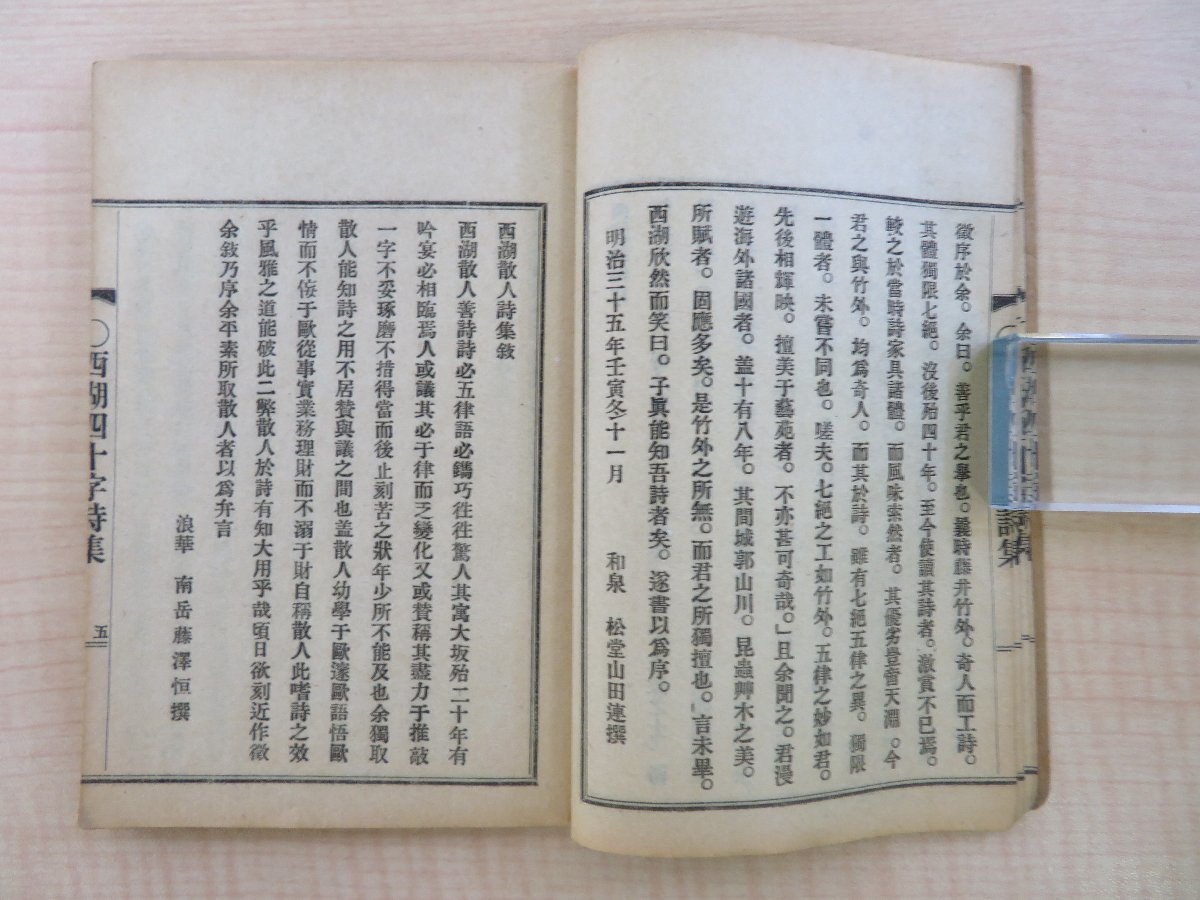 徵序於余。余曰。善乎君之擧也。曩時藤井竹外。奇人而工詩。
其體獨限七絕。沒後殆四十年。至今使讀其詩者。激賞不已焉。
較之於當時詩家具諸體。而風味索然者。其優劣豈啻天淵。今
君之與竹外。均爲奇人。而其於詩。雖有七絕五律之異。獨限
一體者。未嘗不同也。嗟夫。七絕之工如竹外。五律之妙如君。
先後相輝映。擅美于藝苑者。不亦甚可奇哉。」且余聞之。君漫
遊海外諸國者。蓋十有八年。其間城郭山川。昆蟲艸木之美。
所賦者。固應多矣。是竹外之所無。而君之所獨擅也。」言未畢。
西湖欣然而笑曰。子眞能知吾詩者矣。遂書以爲序。
明治三十五年壬寅冬十一月 和泉 松堂山田連撰
西湖散人詩集敍
西湖散人善詩詩必五律語必鑴巧徃徃驚人其寓大坂殆二十年有
吟宴必相臨焉人或議其必于律而乏變化又或賛稱其盡力于推敲
一字不妥琢磨不措得當而後止刻苦之狀年少所不能及也余獨取
散人能知詩之用不居賛與議之間也盖散人幼學于歐邃歐語悟歐
情而不侫于歐從事實業務理財而不溺于財自稱散人此嗜詩之效
乎風雅之道能破此二弊散人於詩有知大用乎哉頃日欲刻近作徵
余敍乃序余平素所取散人者以爲弁言
浪華 南岳藤澤恒撰
〇西湖四十字詩集 五
詩集